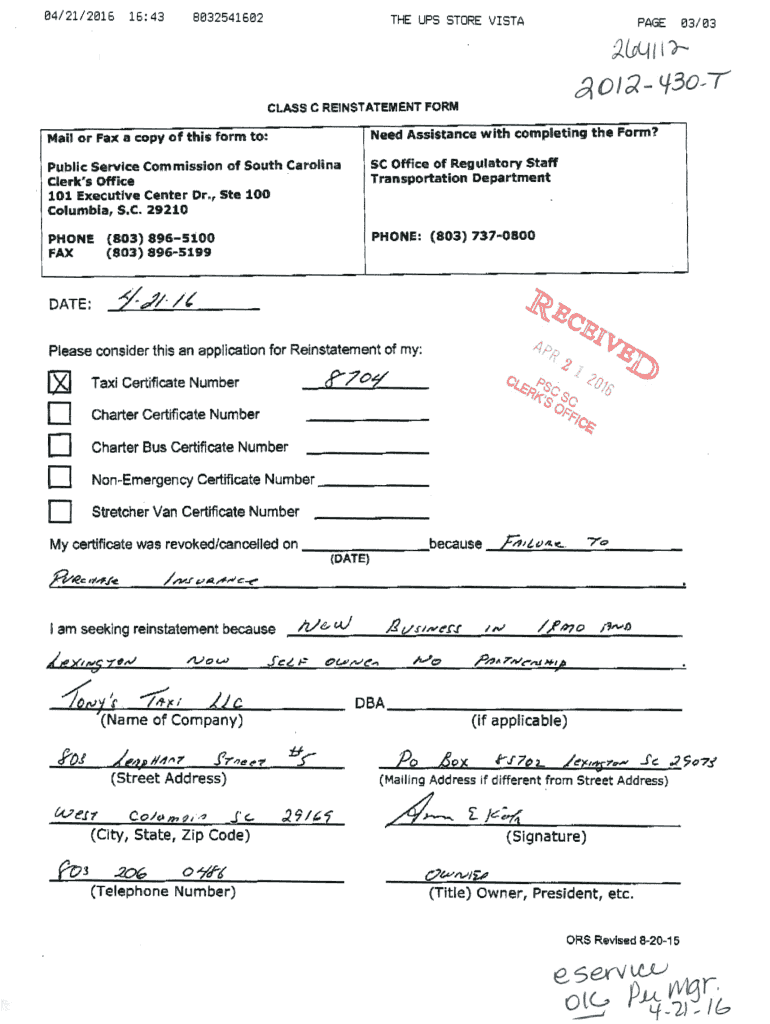 04/21/2016 16:43 8032541602 THE UPS STORE VISTA PAGE 03/03
264112
2012-430-T
CLASS C REINSTATEMENT FORM
Mail or Fax a copy of this form to:
Public Service Commission of South Carolina
Clerk's Office
101 Executive Center Dr., Ste 100
Columbia, S.C. 29210
PHONE (803) 896-5100
FAX (803) 896-5199
Need Assistance with completing the Form?
SC Office of Regulatory Staff
Transportation Department
PHONE: (803) 737-0800
DATE: 4-21-16
RECEIVED
APR 21 2016
PSC SC
CLERK'S OFFICE
Please consider this an application for Reinstatement of my:
X Taxi Certificate Number 8704
Charter Certificate Number
Charter Bus Certificate Number
Non-Emergency Certificate Number
Stretcher Van Certificate Number
My certificate was revoked/cancelled on because FAILURE TO
(DATE)
PURCHASE INSURANCE.
I am seeking reinstatement because NEW BUSINESS IN IRMO AND
LEXINGTON NOW SELF OWNER NO PARTNERSHIP.
TONY'S TAXI LLC DBA
(Name of Company) (if applicable)
803 LEAPHART STREET #5 PO BOX 85702 LEXINGTON SC 29073
(Street Address) (Mailing Address if different from Street Address)
WEST COLUMBIA SC 29169
(City, State, Zip Code) (Signature)
803 206 0486 OWNER
(Telephone Number) (Title) Owner, President, etc.
ORS Revised 8-20-15
eservice
OK Per Mgr.
4-21-16